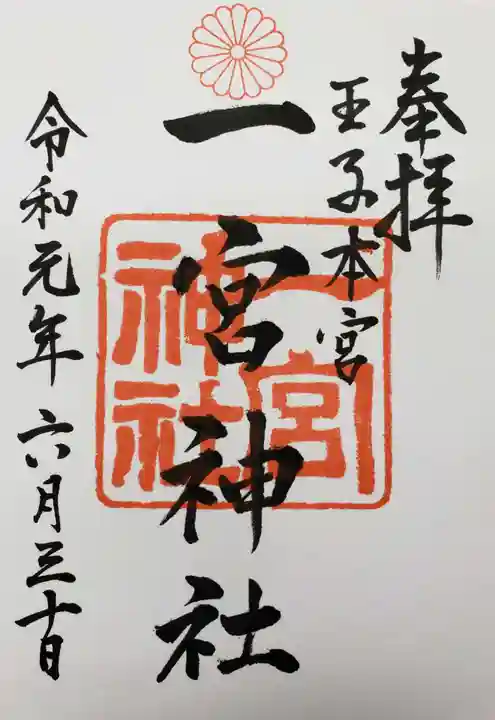 奉拝
王子本宮
一宮神社
一宮神社
令和元年六月三十日